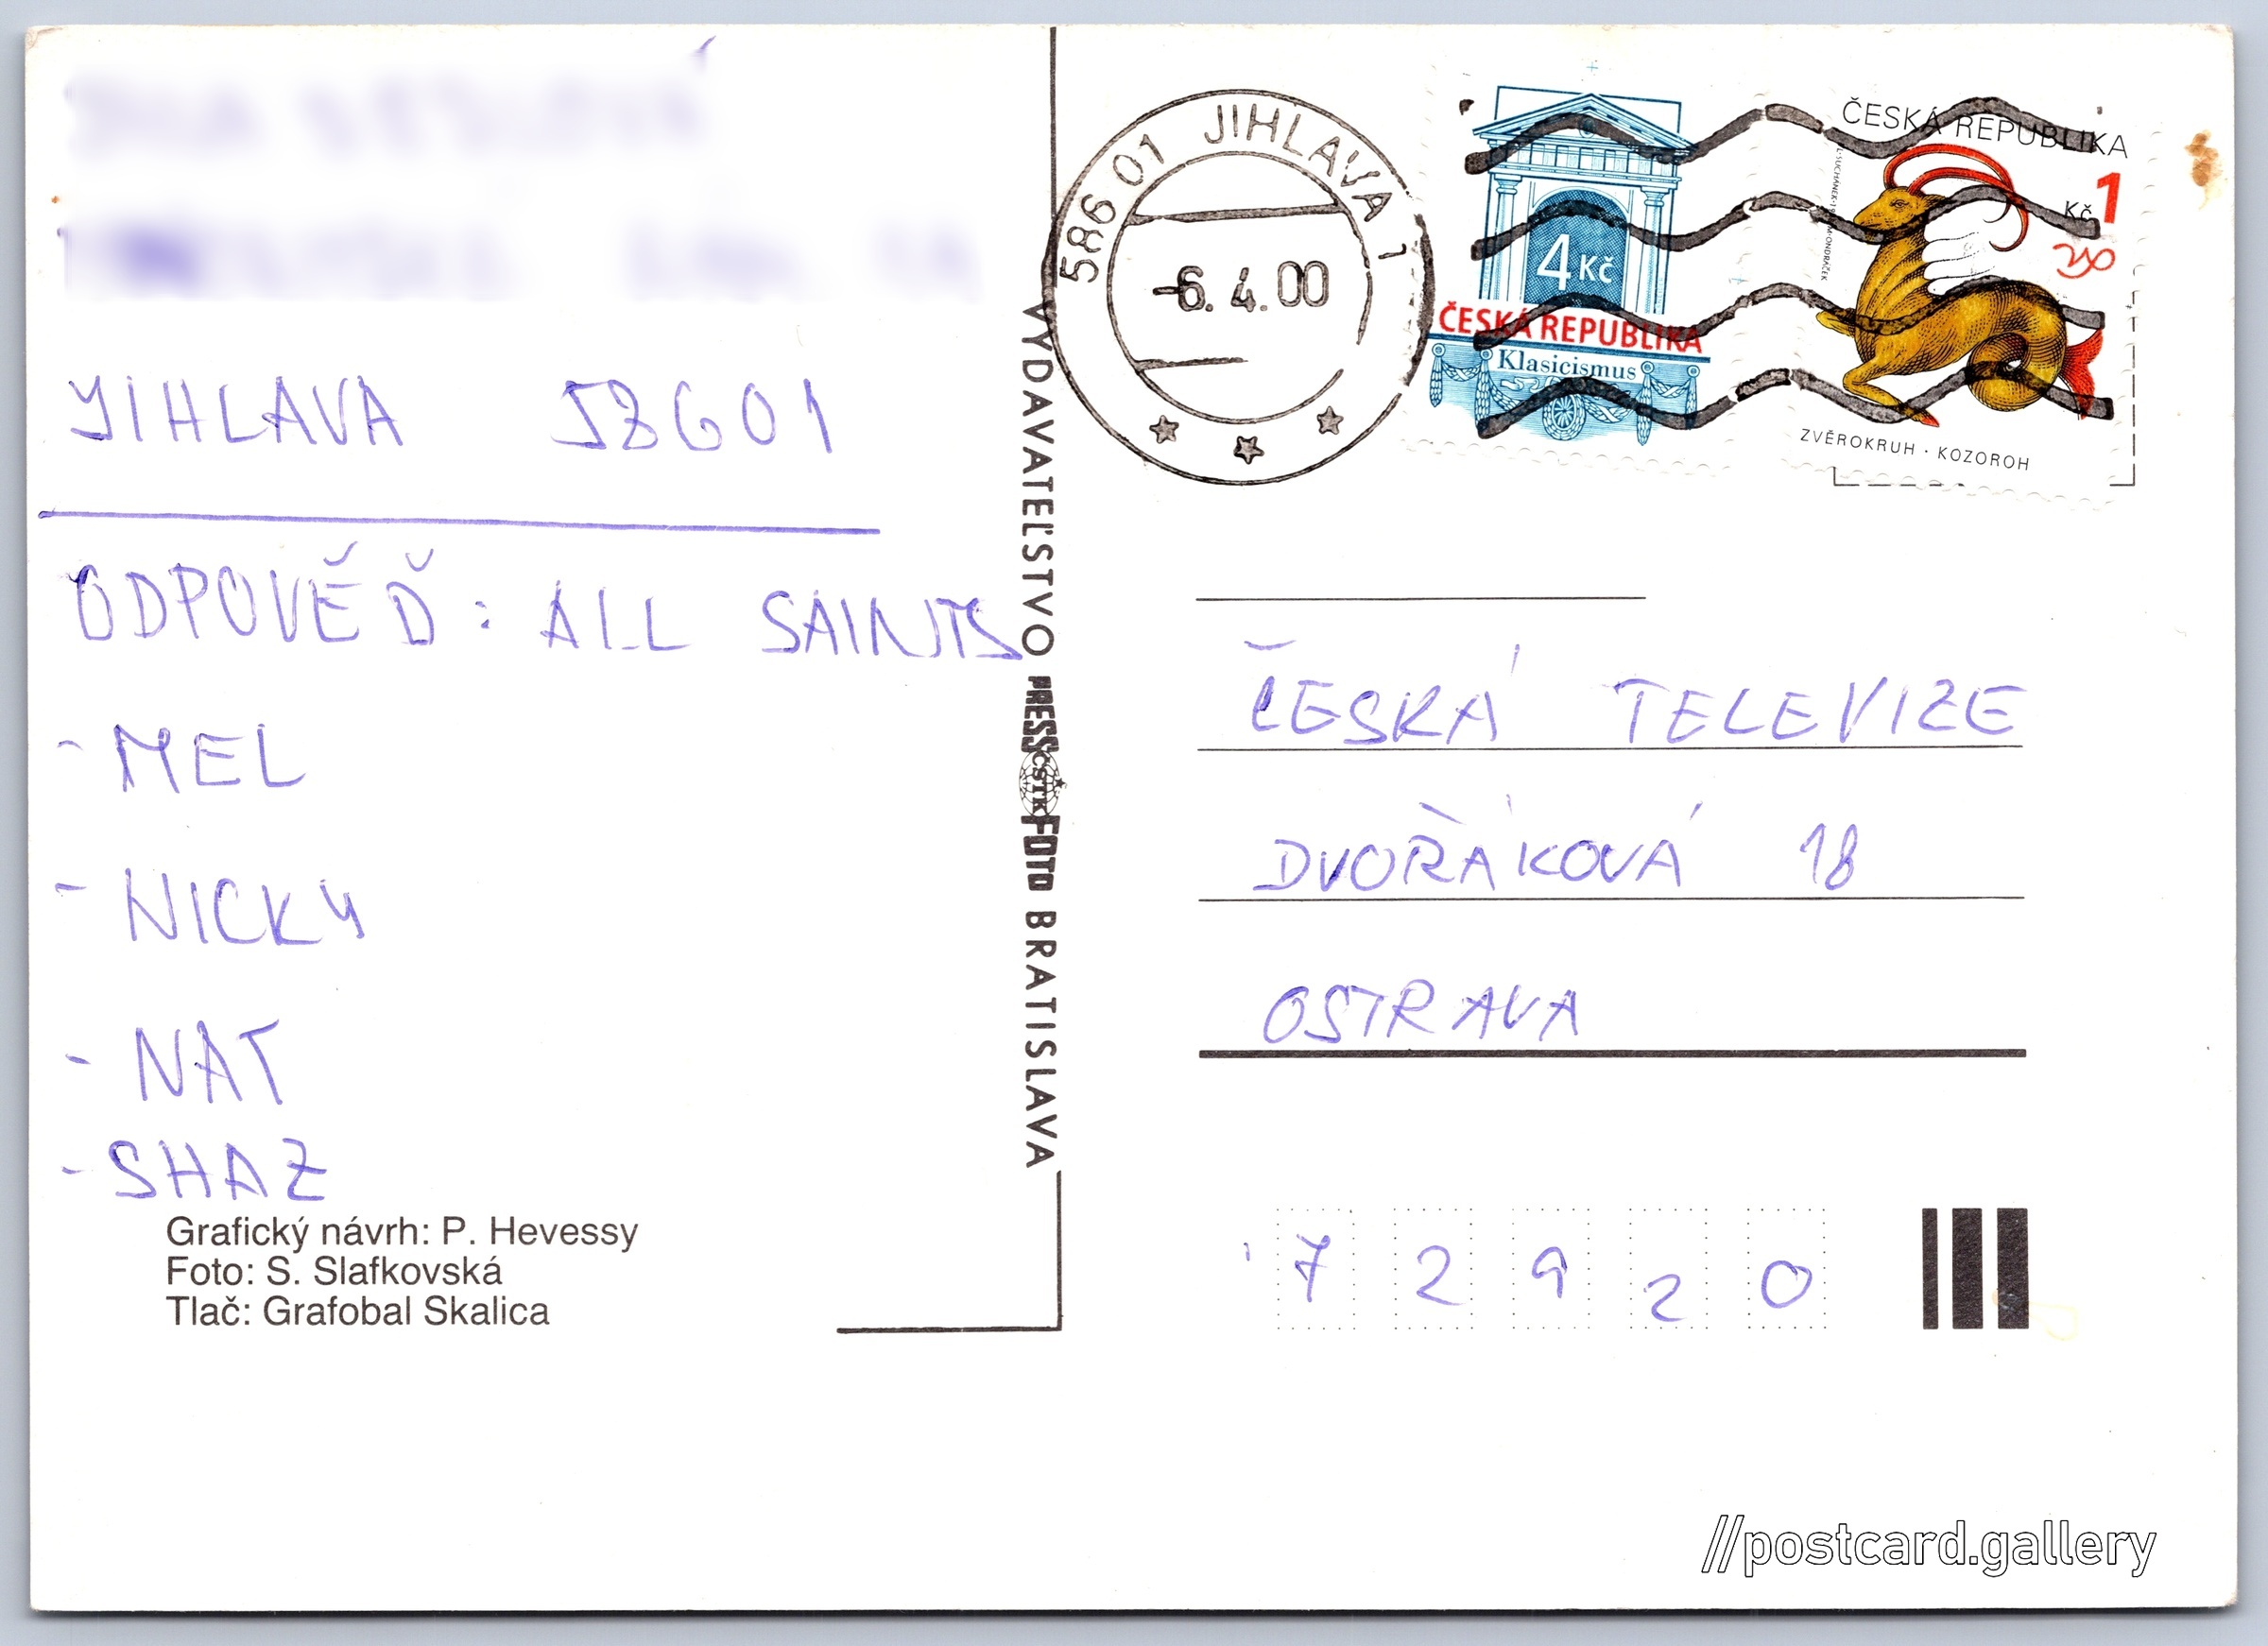 JIHLAVA 58601
ODPOVĚĎ: ALL SAINTS
- MEL
- NICKY
- NAT
- SHAZ
Grafický návrh: P. Hevessy
Foto: S. Slafkovská
Tlač: Grafobal Skalica
VYDAVATEĽSTVO PRESSFOTO BRATISLAVA
ČSTK
586 01 JIHLAVA 1
-6. 4. 00
4 Kč
ČESKÁ REPUBLIKA
Klasicismus
ČESKÁ REPUBLIKA
Kč 1
ZVĚROKRUH · KOZOROH
ČESKÁ TELEVIZE
DVOŘÁKOVÁ 18
OSTRAVA
72920
//postcard.gallery